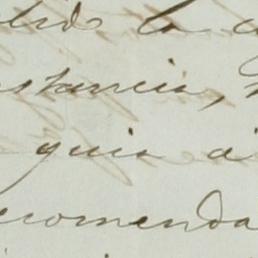 lido la c
stancia,
quia á
ecomenda